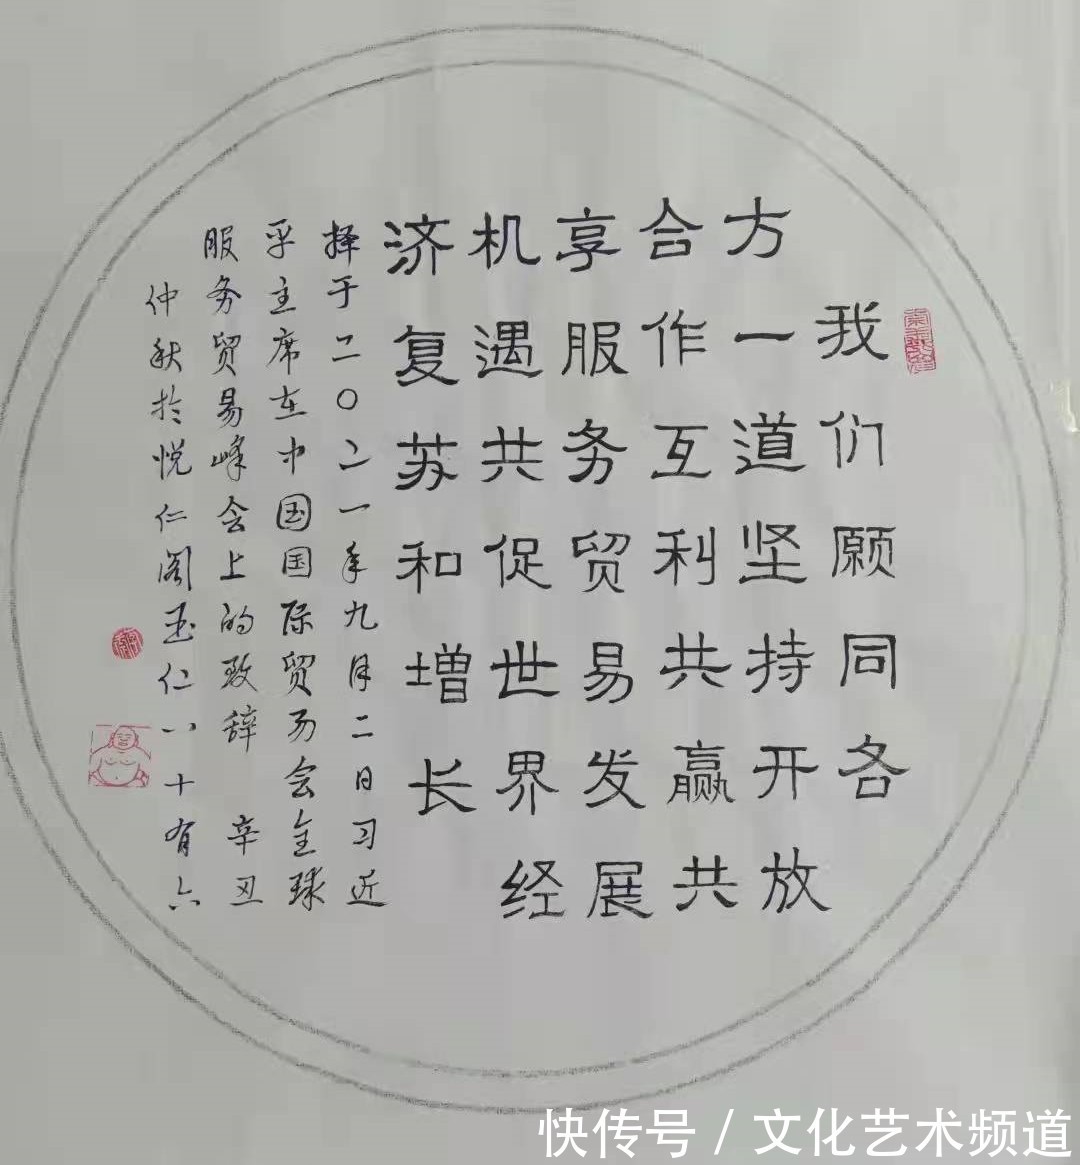 我们愿同各
方一道坚持开放
合作互利共赢共
享服务贸易发展
机遇共促世界经
济复苏和增长
择于二〇二一年九月二日习近
平主席在中国国际贸易会全球
服务贸易峰会上的致辞 辛丑
仲秋於悦仁阁玉仁八十有六
快传号 / 文化艺术频道